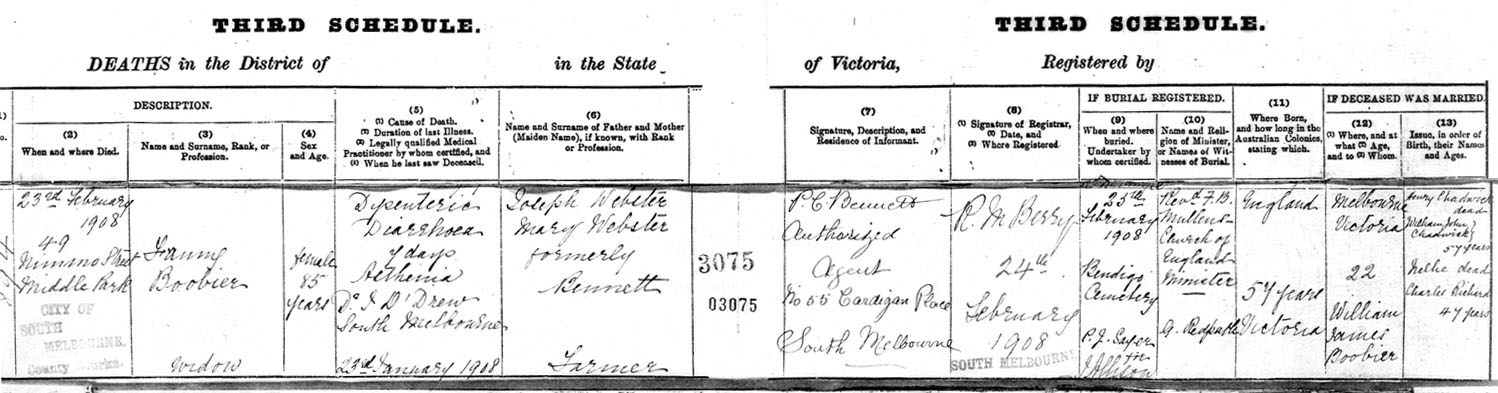 THIRD SCHEDULE.
DEATHS in the District of in the State
DESCRIPTION.
(2)
When and where Died.
(3)
Name and Surname, Rank, or
Profession.
(4)
Sex
and Age.
(5)
(1) Cause of Death.
(2) Duration of last Illness.
(3) Legally qualified Medical
Practitioner by whom certified, and
(4) When he last saw Deceased.
(6)
Name and Surname of Father and Mother
(Maiden Name), if known, with Rank
or Profession.
23rd February
1908
49
Nimmo Street
Middle Park
CITY OF
SOUTH
MELBOURNE.
County
Fanny
Boobier
Widow
female
85
years
Dysenteric
Diarrhoea
7 days
Asthenia
Dr I D' Drew
South Melbourne
23rd January 1908
Joseph Webster
Mary Webster
formerly
Bennett
Farmer
3075
03075
THIRD SCHEDULE.
of Victoria, Registered by
(7)
Signature, Description, and
Residence of Informant.
(8)
(1) Signature of Registrar,
(2) Date, and
(3) Where Registered.
IF BURIAL REGISTERED.
(9)
When and where
buried.
Undertaker by
whom certified.
(10)
Name and Reli-
gion of Minister,
or Names of Wit-
nesses of Burial.
(11)
Where Born,
and how long in the
Australian Colonies,
stating which.
IF DECEASED WAS MARRIED.
(12)
(1) Where, and at
what (2) Age,
and to (3) Whom.
(13)
Issue, in order of
Birth, their Names
and Ages.
P C Bennett
Authorized
Agent
No 55 Cardigan Place
South Melbourne
R. M Berry
24th
February
1908
SOUTH MELBOURNE
25th
February
1908
Bendigo
Cemetery
Revd F. B.
Mullens
Church of
England
Minister
G. Redpath
England
57 years
Victoria
Melbourne
Victoria
22
William
James
Boobier
Henry Chadwick
dead
William John
Chadwick
57 years
Nellie dead
Charles Richard
47 years